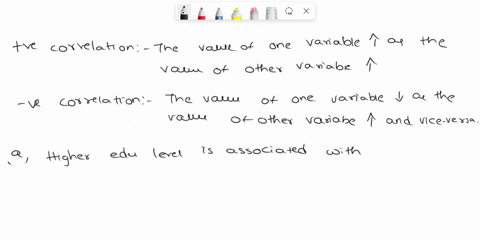 +ve correlation:- The value of one variable ↑ as the
value of other variabe ↑
-ve correlation:- The value of one variable ↓ as the
value of other variabe ↑ and vice-versa.
a, Higher edu level is associated with